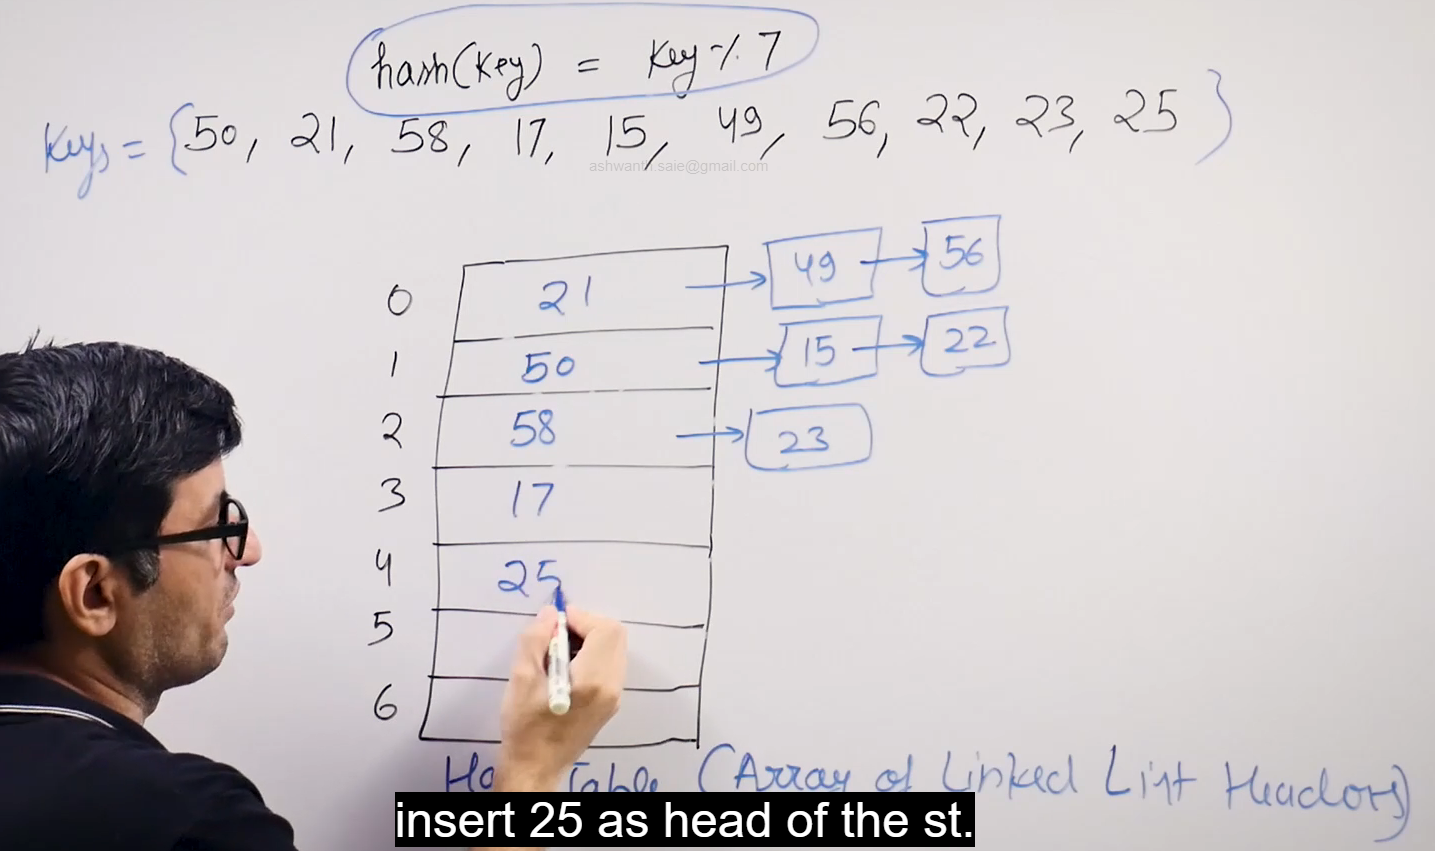 hash(Key) = Key % 7
Keys = {50, 21, 58, 17, 15, 49, 56, 22, 23, 25}
ashwanth.saie@gmail.com
0 21 → 49 → 56
1 50 → 15 → 22
2 58 → 23
3 17
4 25
5
6
Table (Array of Linked List Headers)
insert 25 as head of the st.